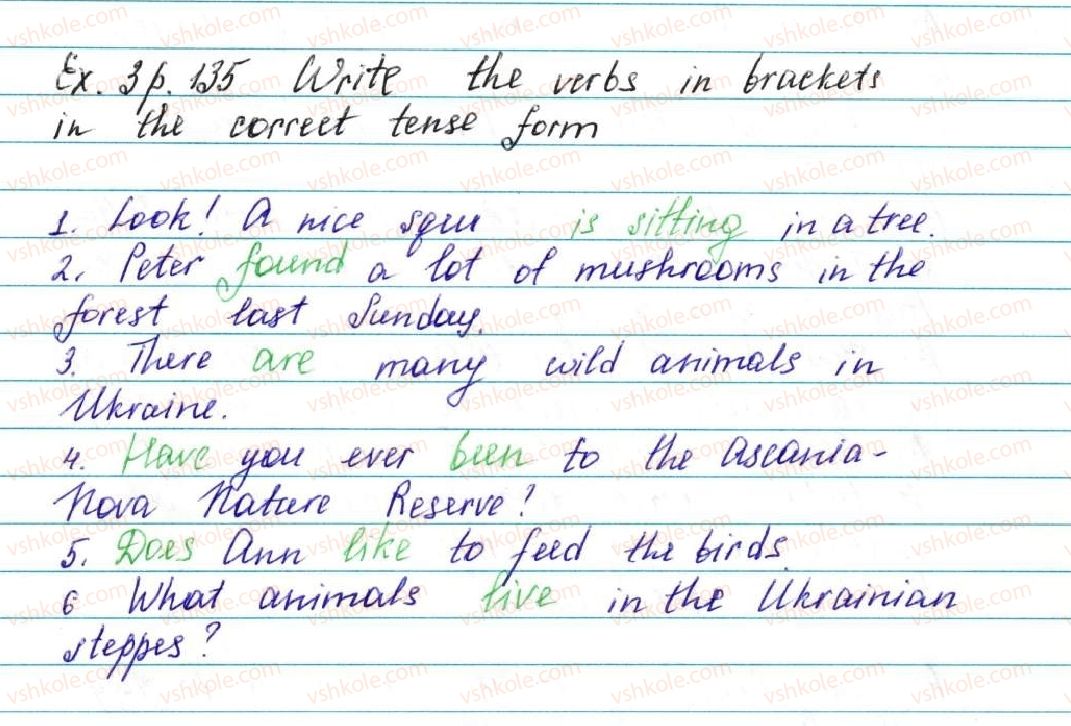 Ex. 3 p. 135 Write the verbs in brackets
in the correct tense form
1. Look! A nice squ is sitting in a tree.
2. Peter found a lot of mushrooms in the
forest last Sunday.
3. There are many wild animals in
Ukraine.
4. Have you ever been to the Ascania-
Nova Nature Reserve?
5. Does Ann like to feed the birds
6 What animals live in the Ukrainian
steppes?
vshkole.com